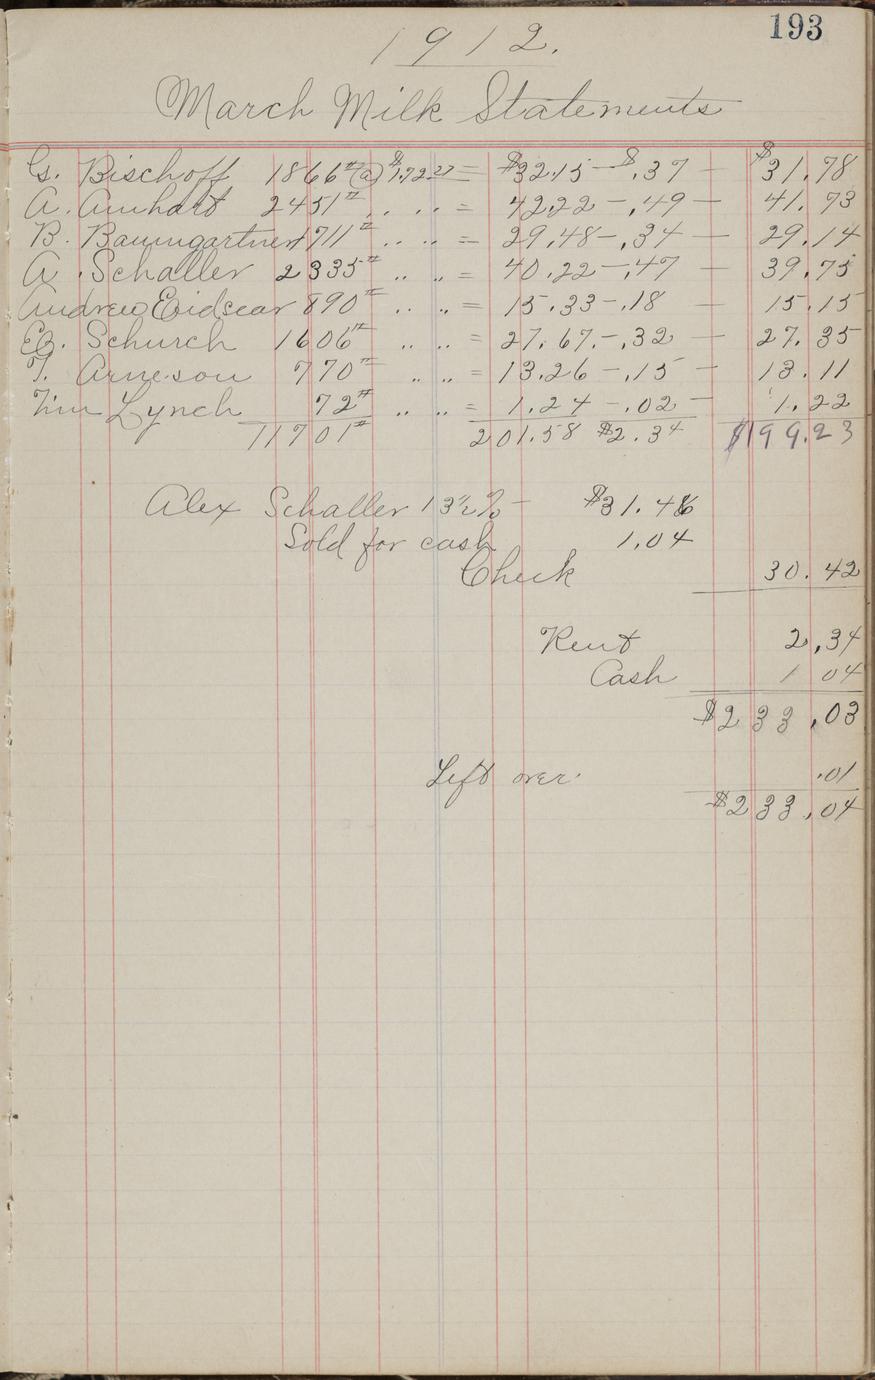 193
1912.
March Milk Statements
G. Bischoff 1866# @ $1.72.27 = $32.15 - $.37 - $31.78
A. Amhart 2451# .. .. = 42.22 - .49 - 41.73
B. Baumgartner 1711# .. .. = 29.48 - .34 - 29.14
A. Schaller 2335# .. .. = 40.22 - .47 - 39.75
Andrew Eidsear 890# .. .. = 15.33 - .18 - 15.15
Ed. Schurch 1606# .. .. = 27.67. - .32 - 27.35
T. Arneson 770# .. .. = 13.26 - .15 - 13.11
Tim Lynch 72# .. .. = 1.24 - .02 - 1.22
11701# 201.58 $2.34 $199.23
Alex Schaller 13½% - $31.46
Sold for cash 1.04
Check 30.42
Rent 2.34
Cash 1 04
$233.03
Left over. .01
$233.04